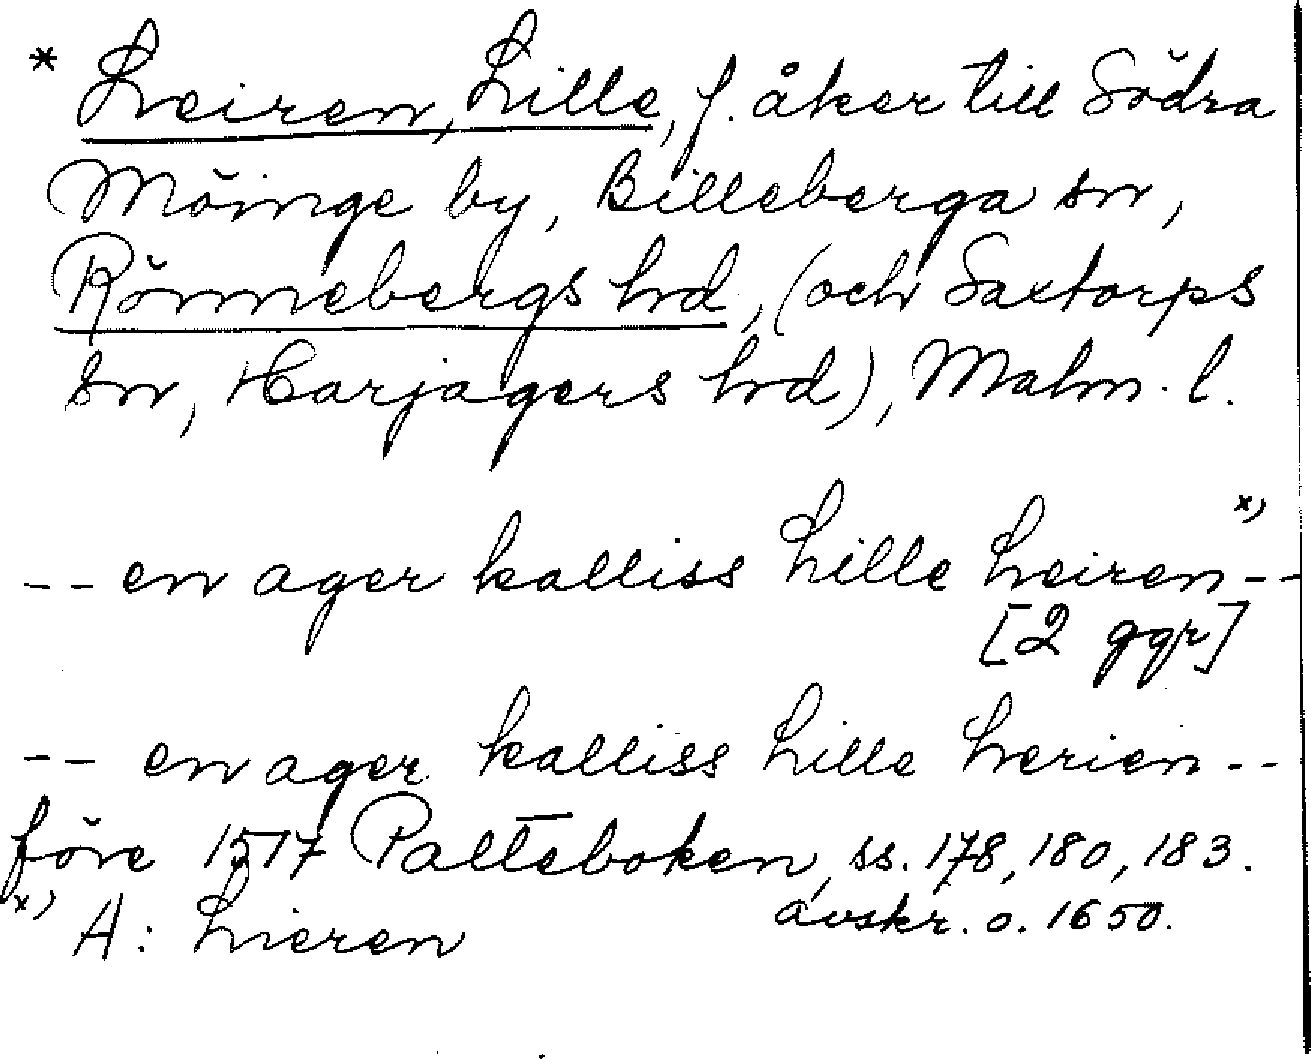 * Leiren, Lille, f. åker till Södra
Möinge by, Billeberga sn,
Rönnebergs hrd, (och Saxtorps
sn, Harjagers hrd), Malm. l.
-- en ager kalliss Lille Leiren x) --
[2 ggr]
-- en ager kalliss Lille Lerien --
före 1517 Palteboken, ss. 178, 180, 183.
avskr. o. 1650.
x) A: Lieren